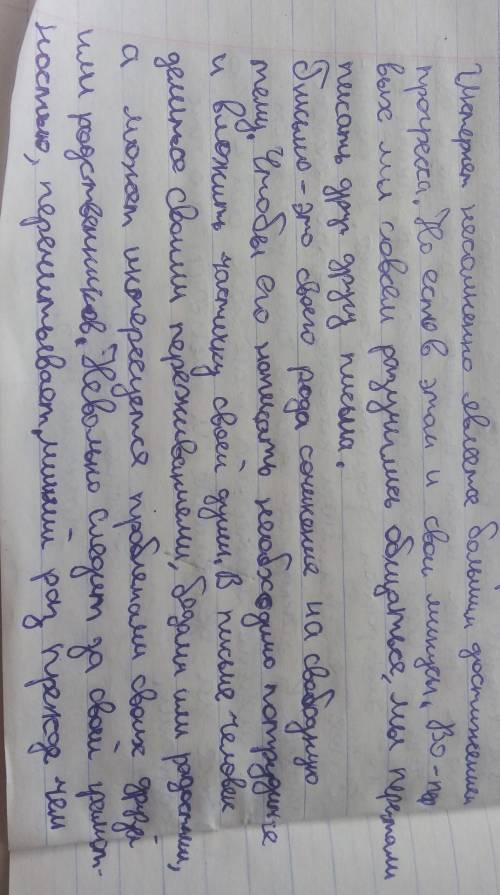 Интернет несомненно является большим достижением
прогресса. Но есть в этом и свои минусы. Во-пер
вых мы совсем разучились общаться, мы перестали
писать друг другу письма.
Письмо - это своего рода сочинение на свободную
тему. Чтобы его написать необходимо потрудиться
и вложить частичку своей души. В письме человек
делиться своими переживаниями, бедами или радостями,
а может интересуется проблемами своих друзей
или родственников. Невольно следит за своей грамот-
ностью, перечитывает, лишний раз прежде чем